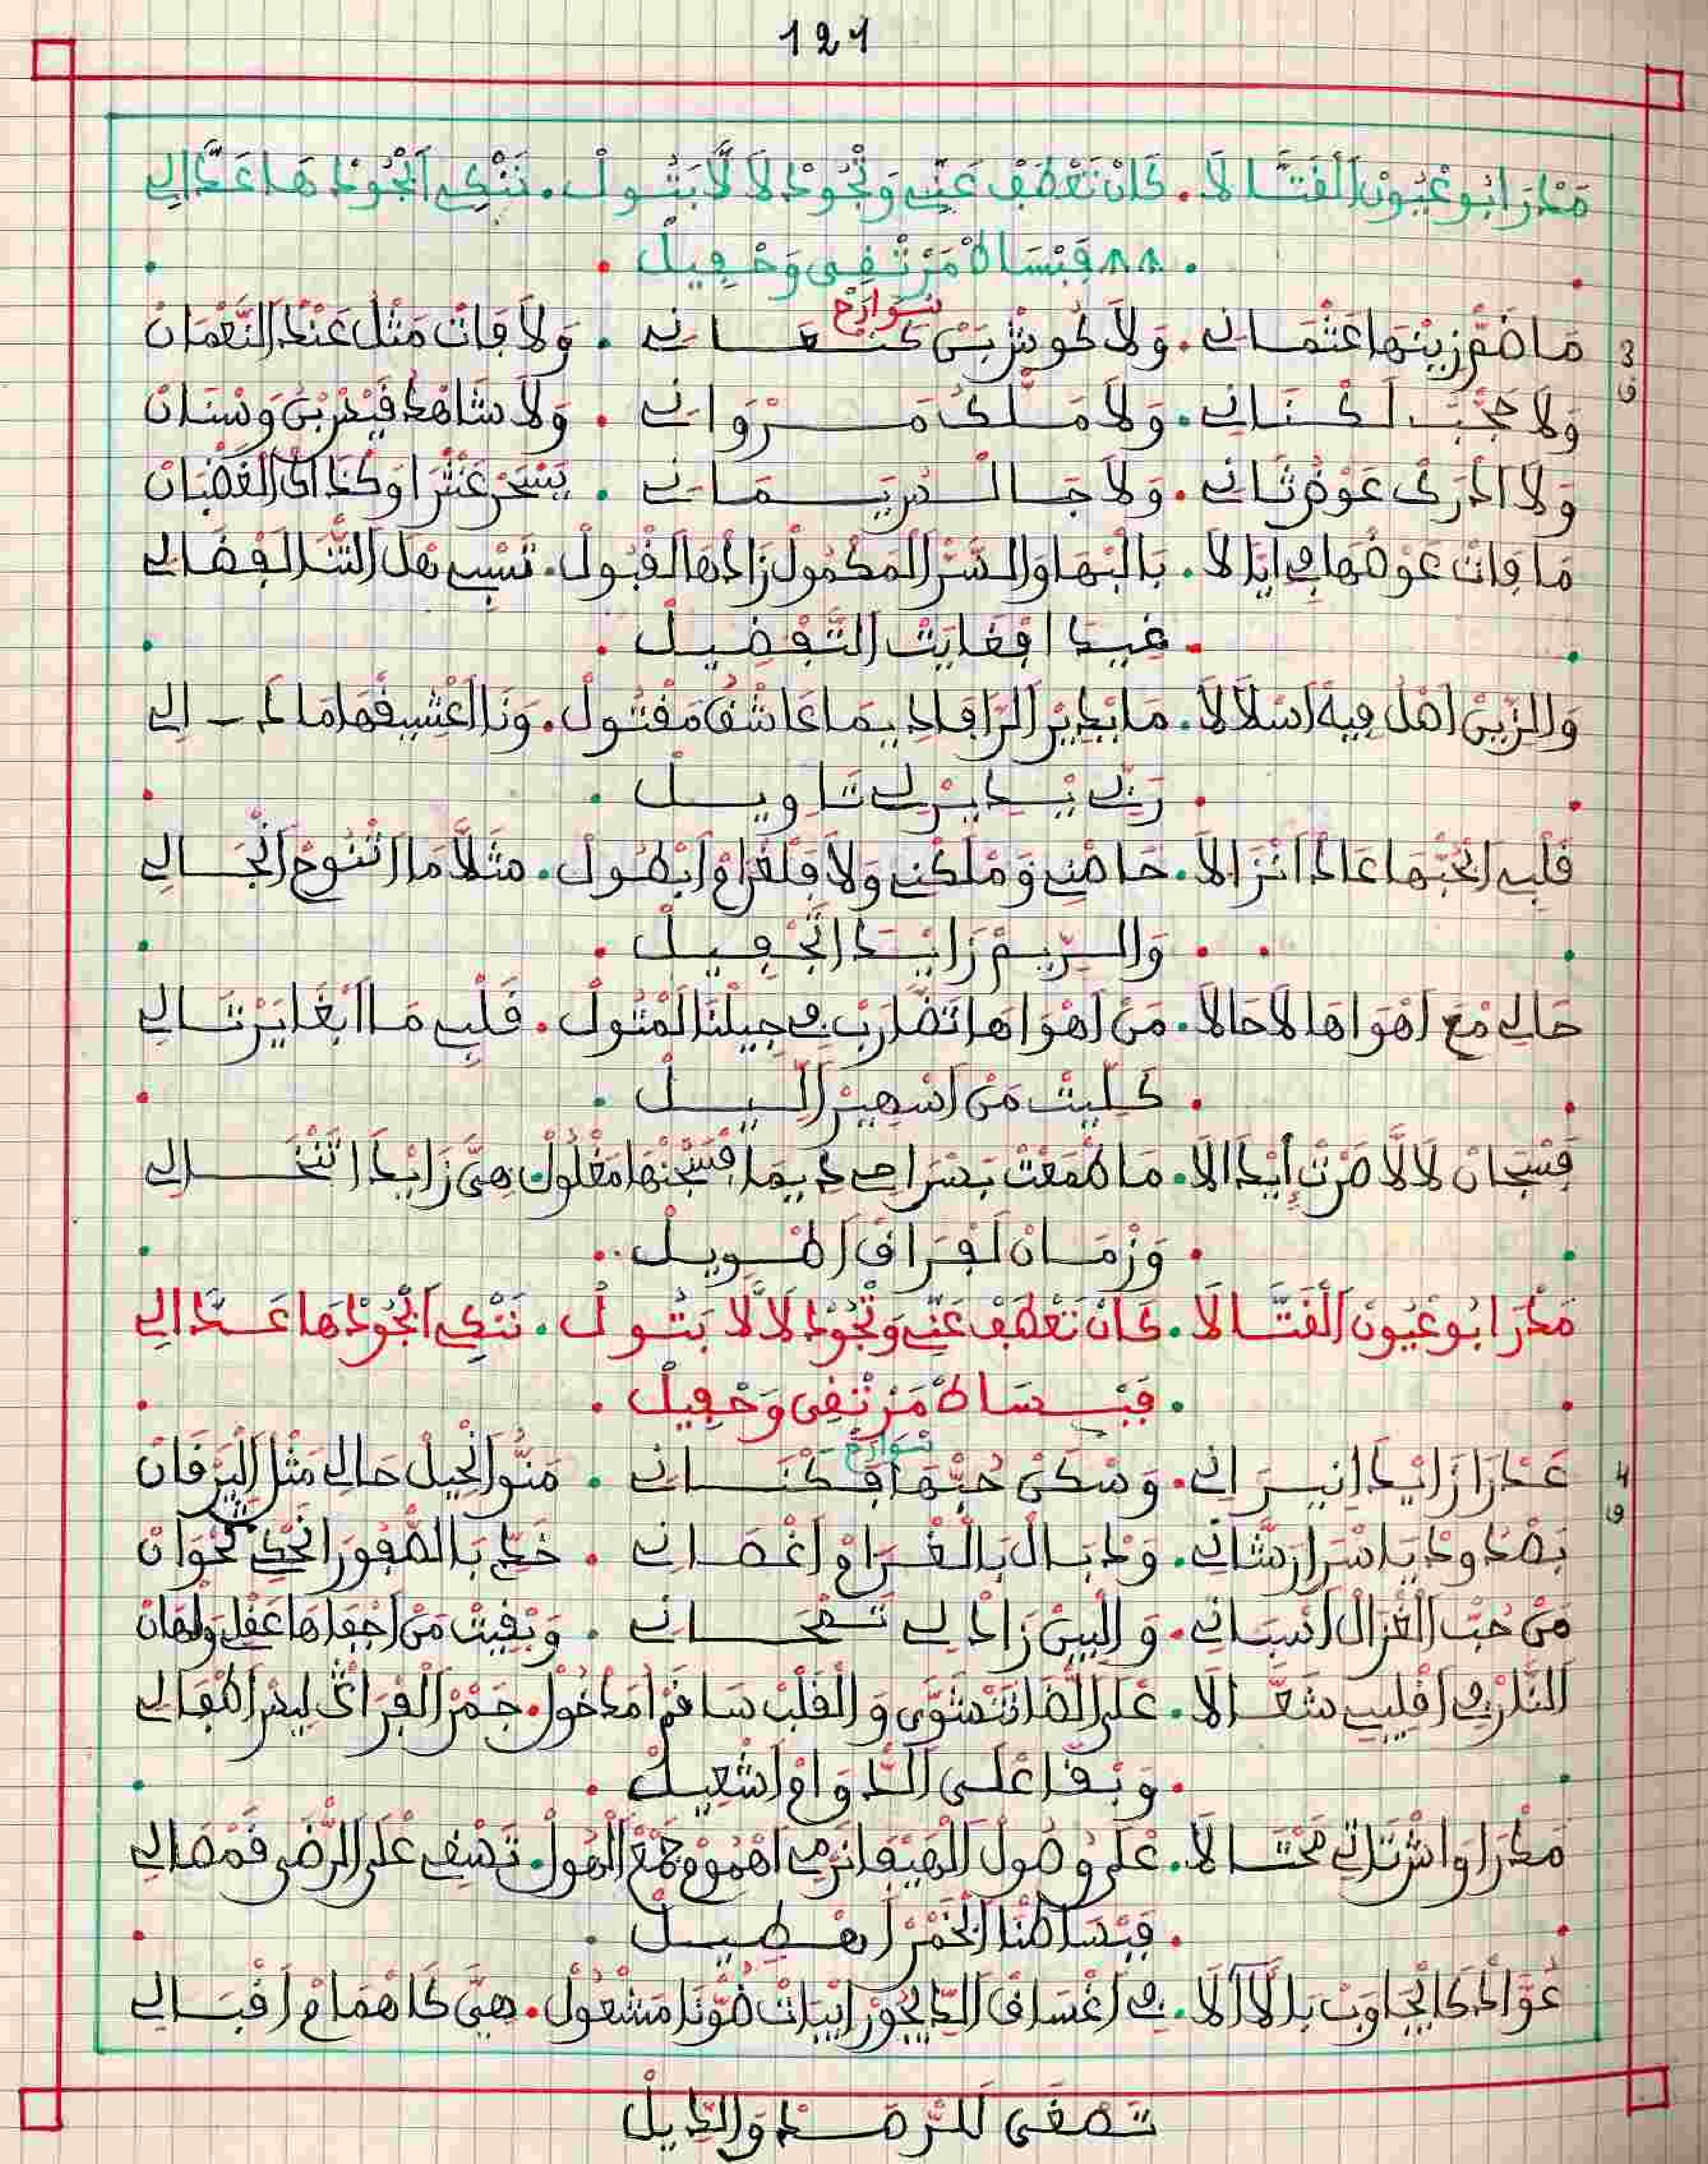 121
مَدْرَ ابُو عْيُونْ الْفَتَّالَا . كَانْ تَعْطَفْ عَنِّي وَتْجُودْ لَالَّا بَتُولْ . نَنْكِي الْجُودْهَا عَدَّالِي
. فَبْسَاطْ مَرْتْفِي وَحْفِيلْ .
سْوَارَحْ
3 ف
مَا ضَمّْ زِينْهَا عَثْمَانِي . وَلَا كُوشْ بَنْ كَنْعَانِي . وَلَا فَاتْ مَثْلْ عَنْدْ النَّعْمَانْ
وَلَا حَجْبْ لَكْنَانِي . وَلَا مَلْكْ مَرْوَانِي . وَلَا شَاهْدْ فِيدْ رْبَى وَسْنَانْ
وَلَا ادْرَكْ عَوْضْ ثَانِي . وَلَا جَالْ رِيمَانِي . يَسْحَرْ عَنْتْرَا وَكْذَاكْ الْغَضْبَانْ
مَا فَاتْ عَوْضْهَا فِي ايَّالَا . بَالْبْهَا وَالسَّرّْ الْمَكْمُولْ زَادْهَا الْقْبُولْ . تَسْبِي هْلْ الثَّنَا لَفْضَالِي
. غِيدَا فْغَايَتْ التَّفْضِيلْ .
وَالزِّينْ اهْلْ فِيهْ اسْلَالَا . مَا يْدِيرْ الرَّافَا دِيمَا عَاشْقْ مَفْتُولْ . وَنَا اعْشِيقْهَا مَا دَالِي
. رَبِّي يْدِيرْ لِي تَاوِيلْ .
قَلْبِي الْحُبّْهَا عَادْ انْزَالَا . حَاضْنِي وَمْلَكْنِي وَلَا فَلْغْرَامْ ابْطُولْ . مَثْلَا مَا اتْنُوحْ انْجَالِي
. وَالرِّيمْ زَايْدَا التَّجْفِيلْ .
حَالِي مْعَ اهْوَاهَا لَا حَالَا . مَنْ اهْوَاهَا تَضَّارَبْ فِي جِيلْنَا الْمْثُولْ . قَلْبِي مَا ابْغَا يَرْتَالِي
. كَلِّيتْ مَنْ اسْهِيرْ اللِّيلْ .
فَسْجَانْ لَالَّا صَرْتْ إِيدَالَا . مَا طْمَعْتْ بَسْرَاحِي دِيمَا فْسَجْنْهَا مَغْلُولْ . هِيَّ زَايْدَا تَنْخَالِي
. وَزْمَانْ لَفْرَاقْ اطْوِيلْ .
مَدْرَ ابُو عْيُونْ الْفَتَّالَا . كَانْ تَعْطَفْ عَنِّي وَتْجُودْ لَالَّا بَتُولْ . نَنْكِي الْجُودْهَا عَدَّالِي
. فَبْسَاطْ مَرْتْفِي وَحْفِيلْ .
سْوَارَحْ
4 ف
عَدْرَا زَايْدَا نِيرَانِي . وَسْكَنْ حُبّْهَا فَكْنَانِي . مَنُّو انْحِيلْ حَالِي مَثْلْ الْيَرْقَانْ
بَصْدُودْ يَا سْرَارْ شَانِي . وَدْبَالْ بَالْغْرَامْ اغْصَانِي . خَدِّي بَالصّْفُورَا نَحْكِي كُحْوَانْ
مَنْ حُبّْ الْغْزَالْ اسْبَانِي . وَالْبِينْ زَادْ لِي تَمْحَانِي . وَبْقِيتْ مَنْ اجْفَاهَا عَقْلِي وَلْهَانْ
النَّارْ فِي اقْلِيبِي شَعَّالَا . عْلَى الضَّا تَتْشَوَّى وَالْقَلْبْ سَاقَمْ امْدْخُولْ . جَمْرْ الْفْرَاقْ لِيسْ اطْفَالِي
. وَبْقَا عْلَى الدّْوَامْ اشْعِيلْ .
مَدْرَا وَاشْ تَاتِي مَحْتَالَا . عْلَى وْصُولْ الْهِيفَا نَرْمِي اهْمُومْ جَمْعْ الْهُولْ . تَصْفِي عْلَى الرّْضَى فَمْضَالِي
. فَبْسَاطْنَا الْخْمَرْ اهْطِيلْ .
عُوَّادْ كَايْجَاوَبْ بَلَالَا . فِي اغْسَاقْ الدِّيجُورْ ايْبَاتْ ضَوْنَا مَشْعُولْ . هِيَّ كَا هْمَامْ اقْبَالِي
تَصْغَى لَلرّْمَدْ وَالدِّيلْ